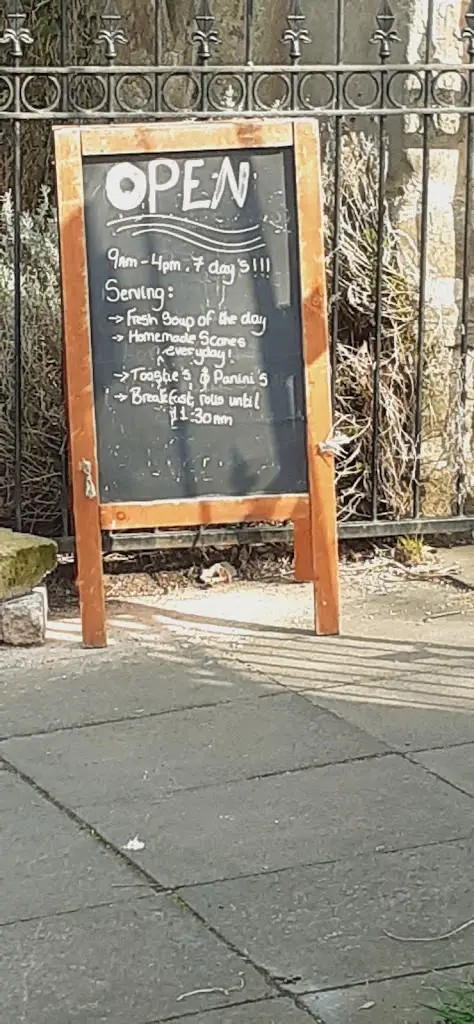 OPEN
9am - 4pm . 7 day's!!!
Serving:
→ Fresh Soup of the day
→ Homemade Scones
everyday!
→ Toastie's & Panini's
→ Breakfast rolls until
11:30am